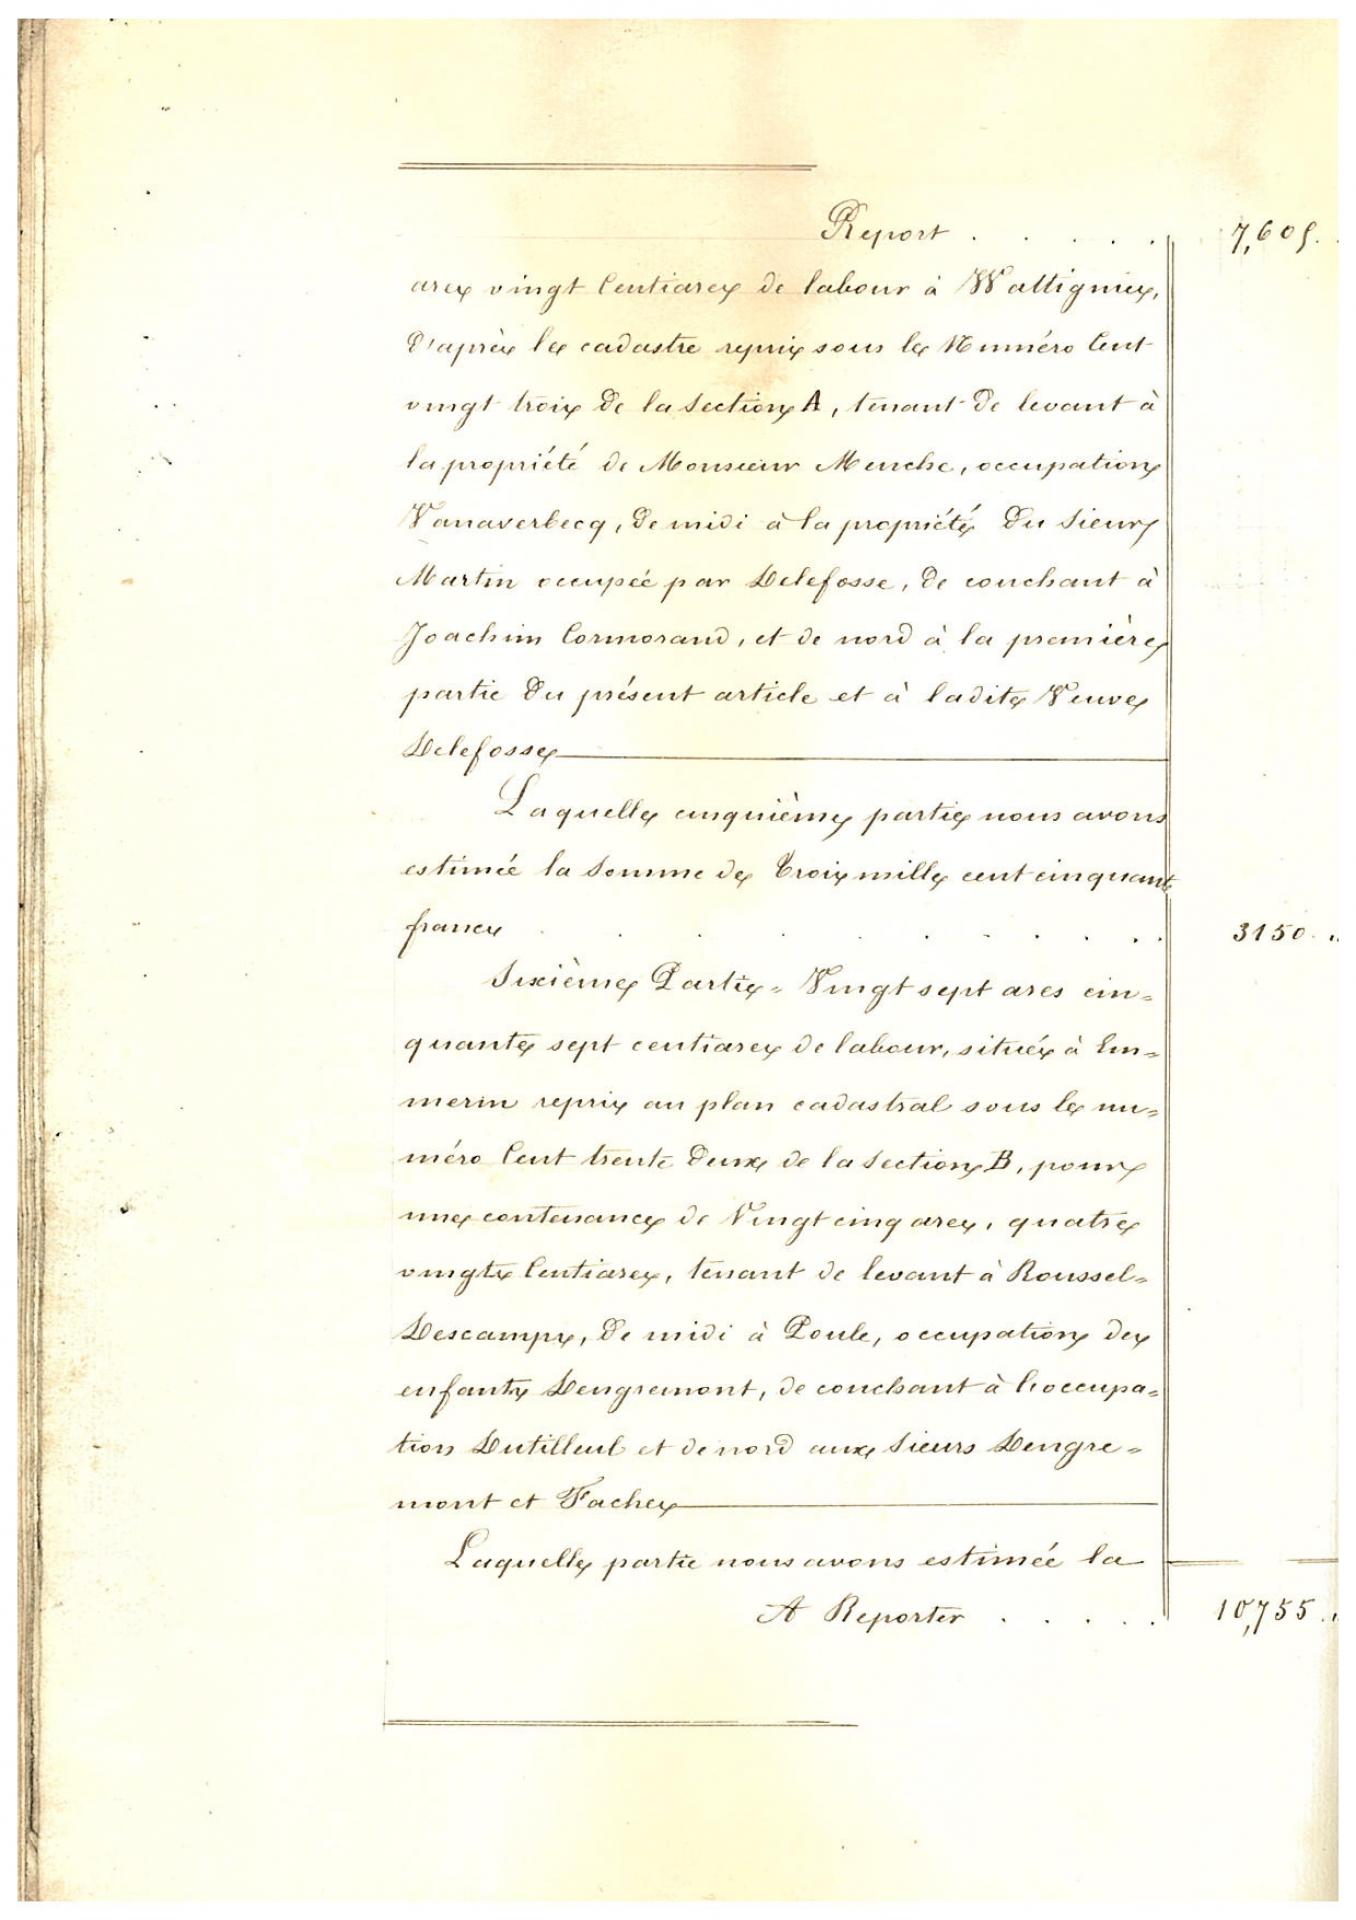 Report . . . . . 7,605.
ares vingt Centiares de labour à Wattignies,
d'après le cadastre repris sous le Numéro Cent
vingt trois de la Section A, tenant de levant à
la propriété de Monsieur Menche, occupation
Vanaverbecq, de midi à la propriété du Sieur
Martin occupée par Delefosse, de couchant à
Joachim Cormorand, et de nord à la première
partie du présent article et à ladite Veuve
Delefosse
Laquelle cinquième partie nous avons
estimée la Somme de Trois mille cent cinquante
francs . . . . . . . . . . 3150. "
Sixième Partie = Vingt sept ares cin=
quante sept centiares de labour, située à Em=
merin repris au plan cadastral sous le nu=
méro Cent trente deux de la Section B, pour
une contenance de Vingt cinq ares, quatre
vingts Centiares, tenant de levant à Roussel=
Descamps, de midi à Poule, occupation des
enfants Dengremont, de couchant à l'occupa=
tion Dutilleul et de nord aux Sieurs Dengre=
mont et Faches
Laquelle partie nous avons estimée la
A Reporter . . . . . 10,755. "